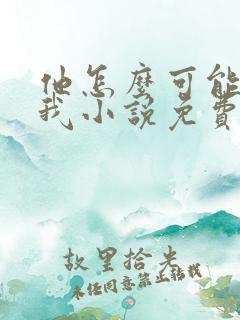 他怎麼可能
我小說免費
故里拾光
未经同意禁止转载